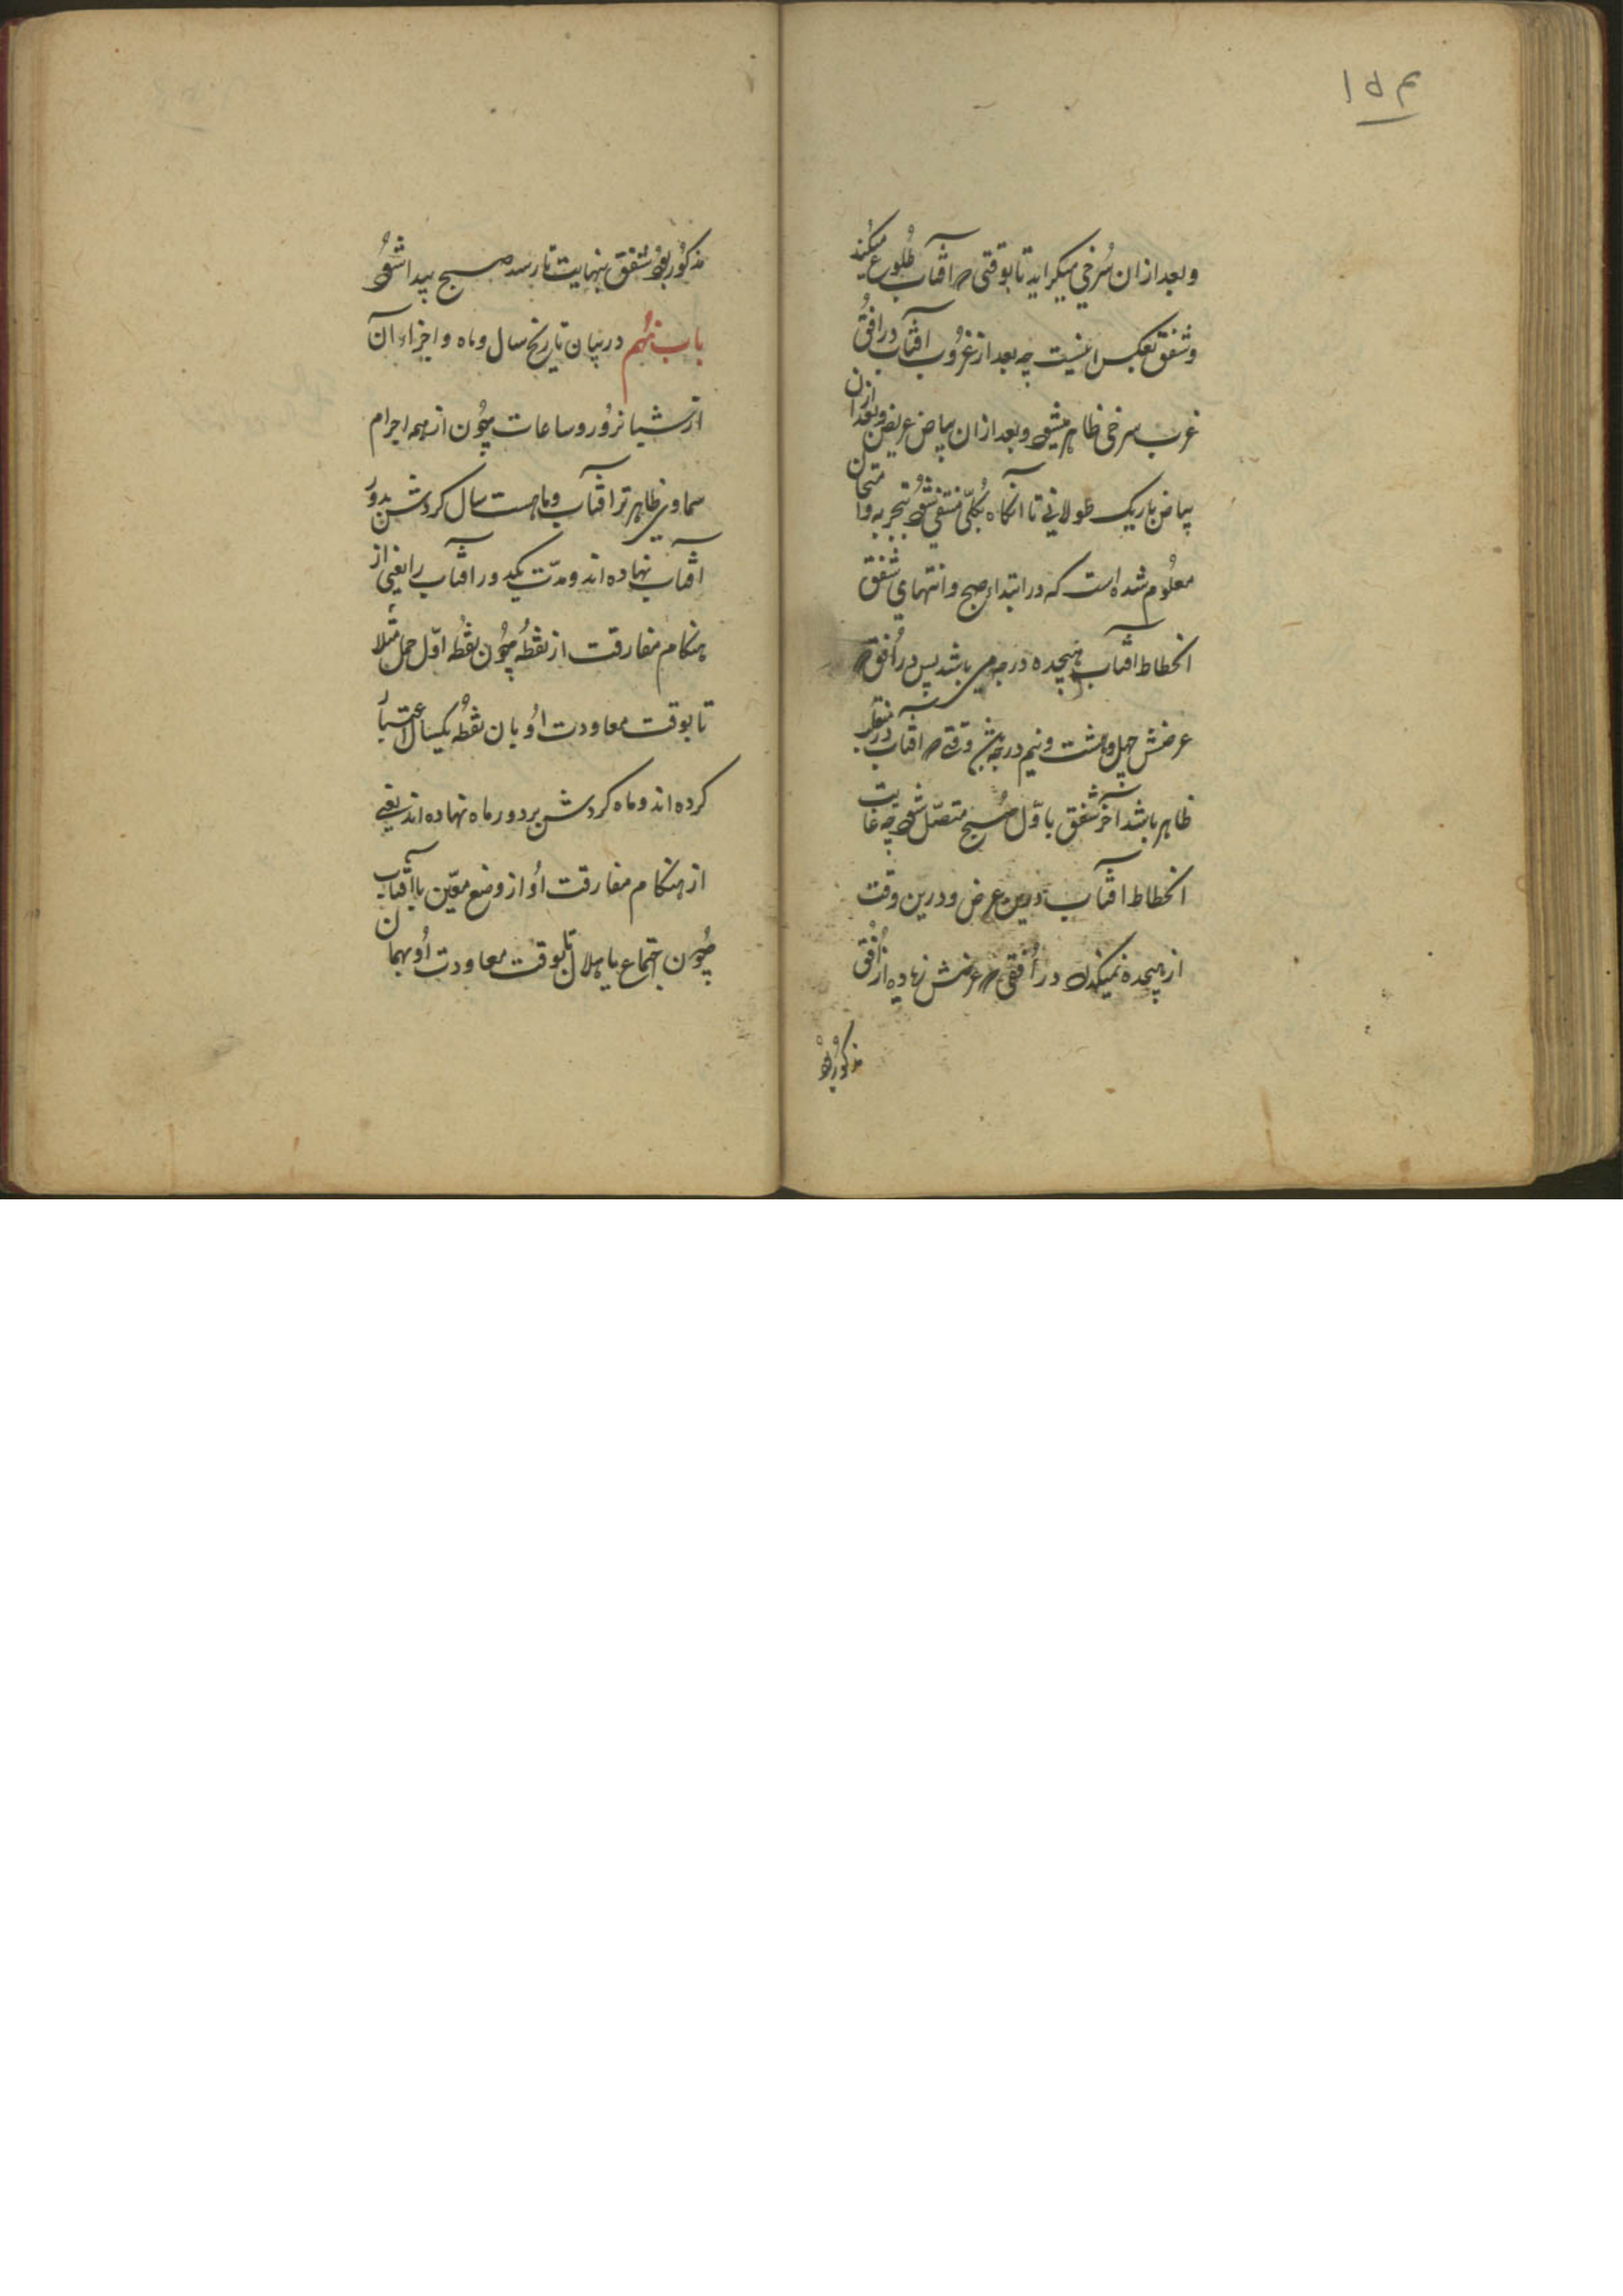 ۱۵۴
وبعد ازان سُرخی میکراید تا بوقتی که آفتاب طُلوع میکند
وشفق بعکس اینست چه بعد از غُروب آفتاب در اُفق
غرب سرخی ظاهر میشود وبعد ازان بیاض عریض وبعد ازان
بیاض باریک طولانی تا آنکاه بکُلّی منتفی شود بتجربه وامتحان
معلُوم شده است که در ابتداء صبح وانتهای شفق
انحطاط آفتاب هیجده درجه می باشد پس در اُفقی که
عرضش چهل وهشت ونیم درجه باشد وقتی که آفتاب در منقلب
ظاهر باشد آخر شفق باوّل صُبح متصّل شود چه غایت
انحطاط آفتاب درین عرض ودرین وقت
از هیجده نمیکذرد در اُفقی که عرضش زیاده از اُفق
مذکور بود
مذکُور بود شفق بنهایت نارسد صبح پیدا شود
باب نهُم در بیان تاریخ سال وماه واجزاء آن
از شبانروُز وساعات چوُن از همه اجرام
سماوی ظاهرتر آفتاب وماهست سال کردش بدور
آفتاب نهاده اند ومدّت یکدور آفتاب را یعنی از
هنکام مفارقت از نقطهُ چوُن نقطهُ اوّل حمل مثلاً
تا بوقت معاودت اوُ بان نقطهُ یکسال اعتبار
کرده اند وماه کردش بر دور ماه نهاده اند یعنی
از هنکام مفارقت اوُ از وضع معیّن با آفتاب
چوُن اجتماع یا هلال تا بوقت معاودت اوُ بهمان